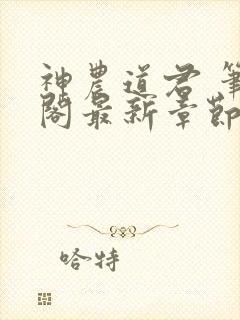 神農道君 筆
閣最新章節
哈特